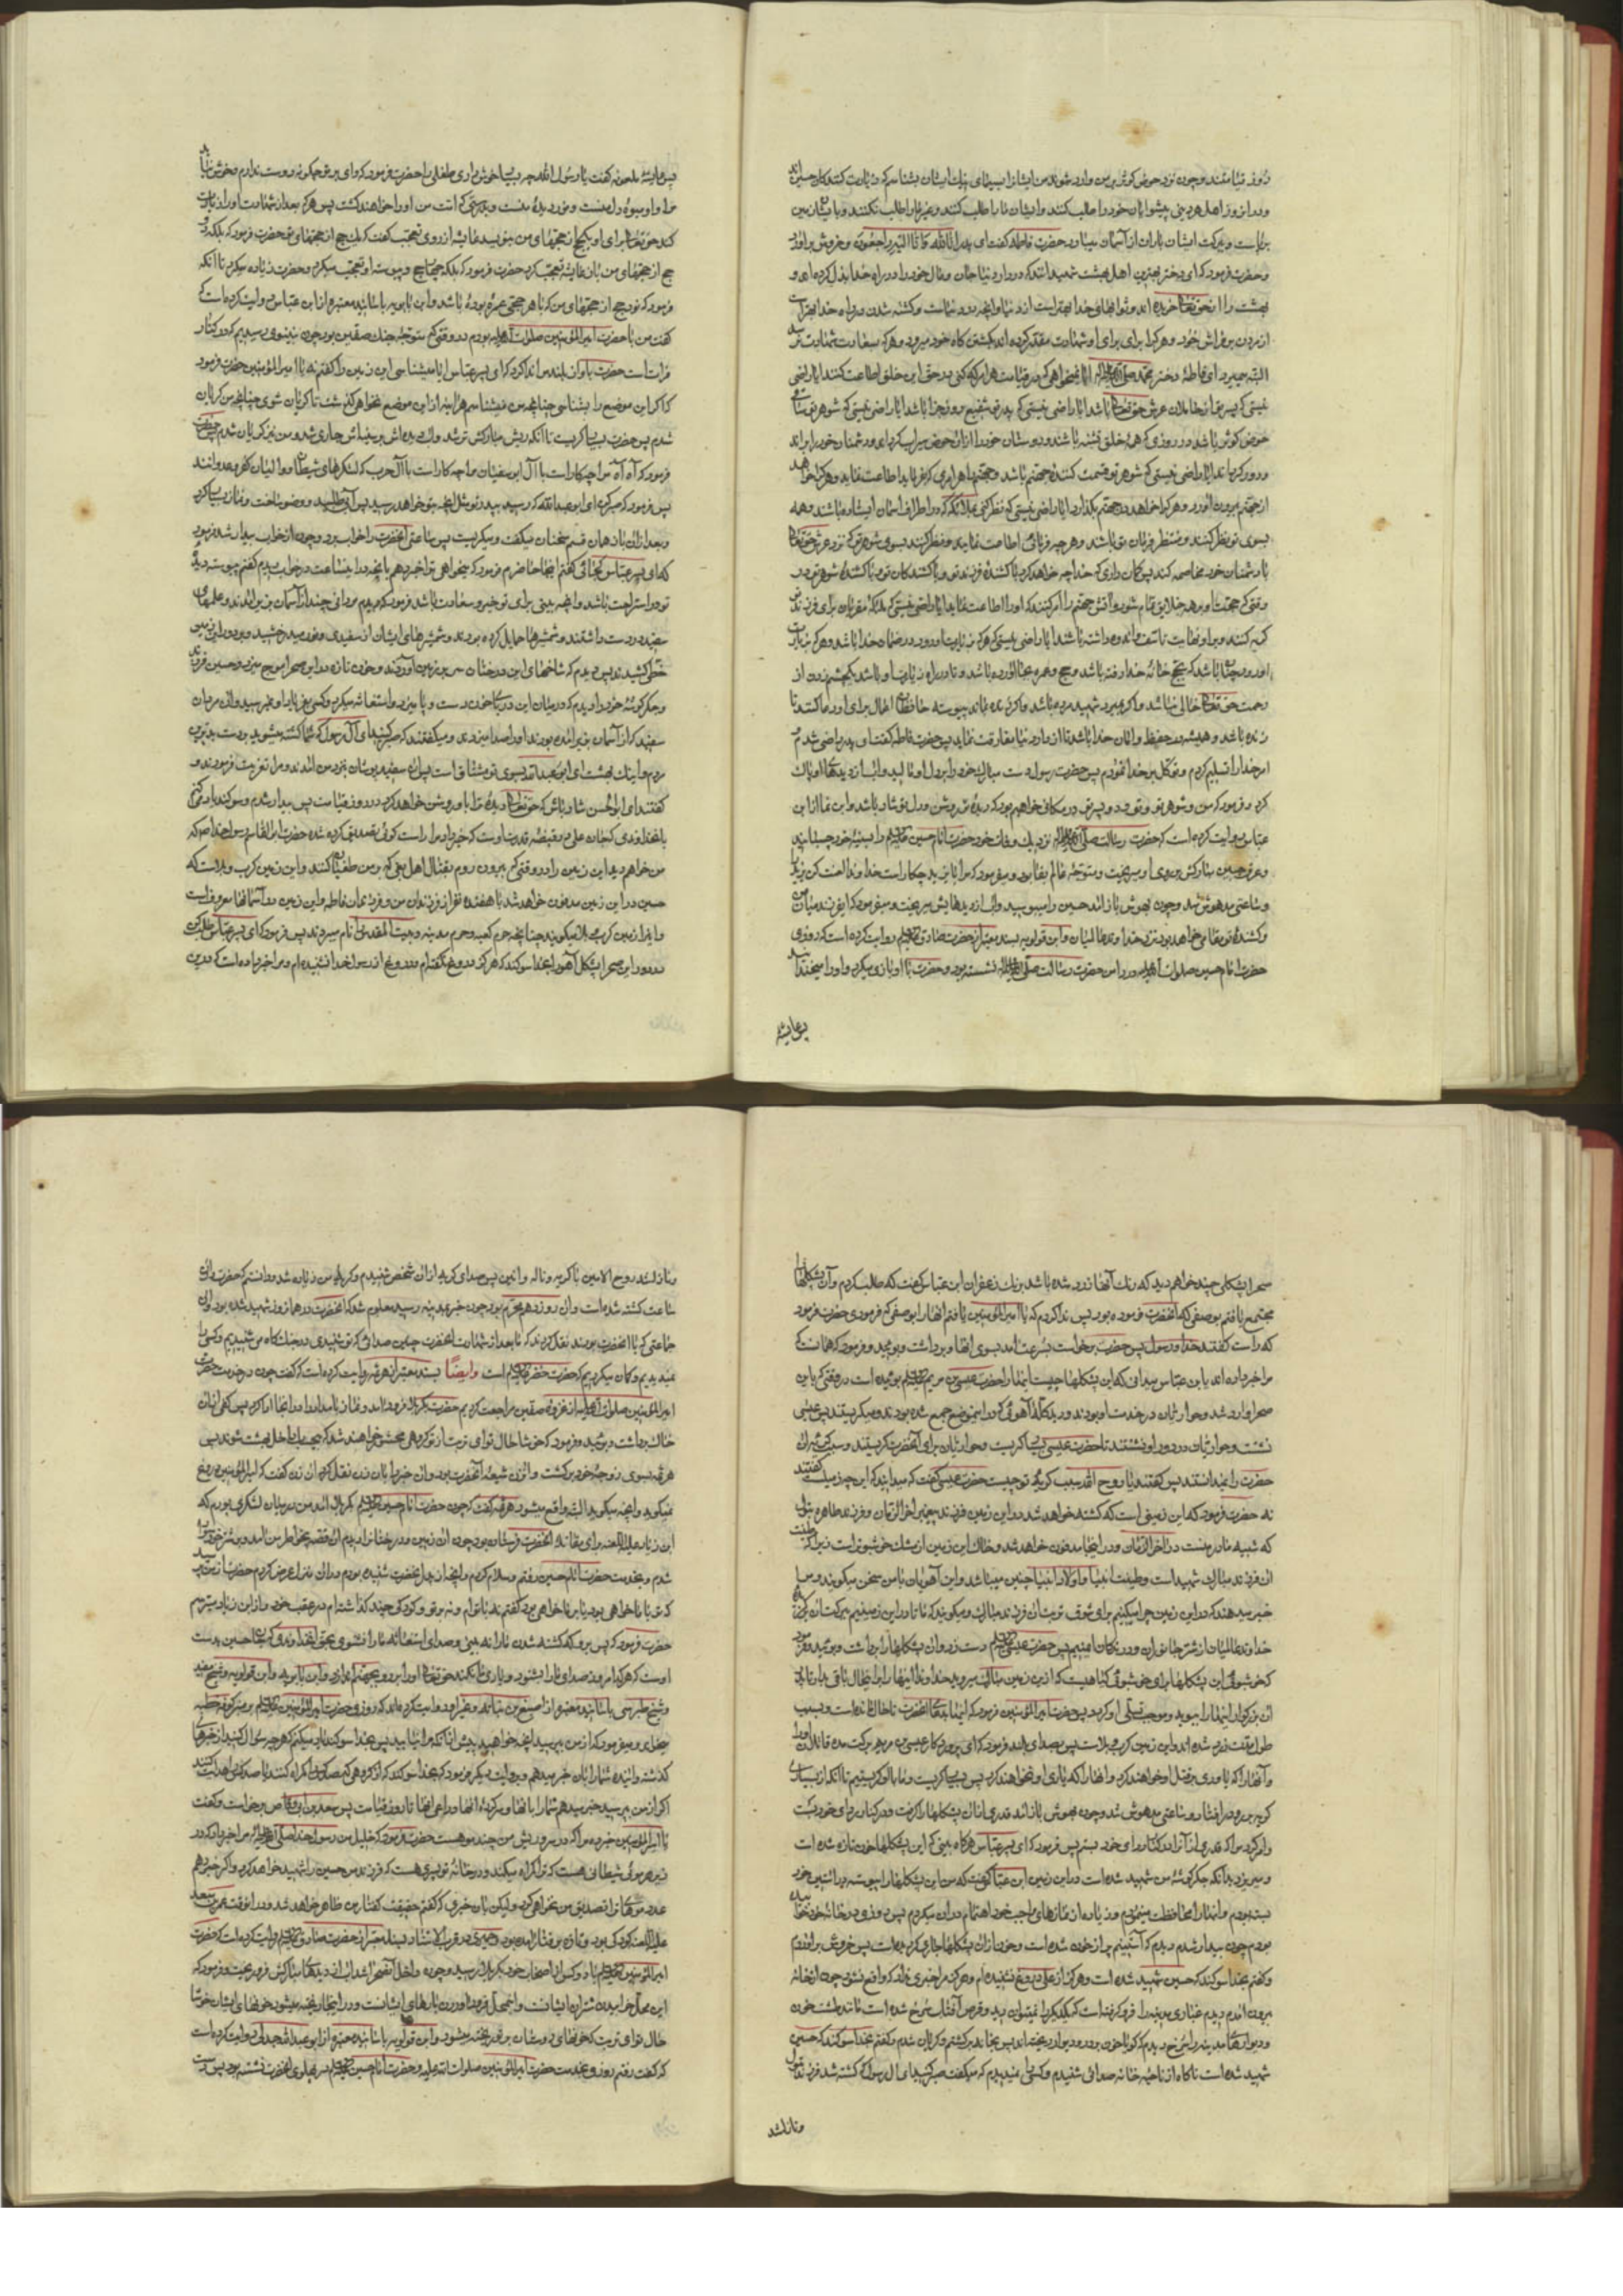 روز قیامتند و چون نزد حوض کوثر بر من وارد شوند من ایشانرا بسیمای ایشان بشناسم که
و در انروز اهل هر دینی پیشوایان خود را طلب کنند و ایشان ما را طلب کنند و بغیر ما را طلب نکنند و بایشان زمین
برپاست و ببرکت ایشان باران از آسمان میبارد حضرت فاطمه گفت ای پدر انا لله و انا الیه راجعون و خروش براورد
و حضرت فرمود که ای دختر بهترین اهل بهشت شهیدانند که در دار دنیا جان و مال خود را در راه خدا بذل کرده اند و
بهشت را از حق تعالی خریده اند و ثوابهای خدا بهتر است از دنیا و آنچه در دنیاست و کشته شدن در راه خدا بهتر است
از مردن بر فراش خود و هر که را برای او شهادت مقدر کرده اند بکشتن گاه خود میرود و هر که سعادت شهادت نرسد
البته میمیرد ای فاطمه دختر محمد ایا نمیخواهی که در قیامت هر امر که کنی در حق این خلق اطاعت کنند ایا راضی
نیستی که پسر تو از حاملان عرش حق تعالی باشد ایا راضی نیستی که پدر تو شفیع روز جزا باشد ایا راضی نیستی که شوهر تو ساقی
حوض کوثر باشد در روزی که همه خلق تشنه باشند و دوستان خود را ازان حوض سیراب گرداند و دشمنان خود را براند
و دور گرداند ایا راضی نیستی که شوهر تو قسمت کننده جهنم باشد و جهنم را هر امری که فرماید اطاعت نماید و هر که را خواهد
از جهنم بیرون اورد و هر که را خواهد در جهنم بگذارد ایا راضی نیستی که نظر کنی بملائکه که در اطراف اسمان ایستاده باشند و همه
بسوی تو نظر کنند و منتظر فرمان تو باشند و هر چه فرمائی اطاعت نمایند و نظر کنند بسوی شوهر تو که نزد عرش حق تعالی
با دشمنان خود مخاصمه کند پس گمان داری که خدا چه خواهد کرد با کشنده فرزند تو و با کشندگان تو و با کشنده شوهر تو در
وقتی که حجت او بر همه خلایق تمام شود و آتش جهنم را امر کنند که او را اطاعت نماید ایا راضی نیستی که ملائکه مقربان برای فرزند تو
گریه کنند و بر او نهایت تاسف و اندوه داشته باشند ایا راضی نیستی که هر که بزیارت او رود در ضمان خدا باشد و هر که بزیارت
او رود چنان باشد که بحج خانه خدا رفته باشد و حج و عمره بجا اورده باشد و تا در راه زیارت او باشد یکچشم زدن از
رحمت حق تعالی خالی نباشد و اگر بمیرد شهید مرده باشد و اگر زنده بماند پیوسته حافظان اعمال برای او دعا کنند تا
زنده باشد و همیشه در حفظ و امان خدا باشد تا از دار دنیا مفارقت نماید پس حضرت فاطمه گفت ای پدر راضی شدم و
امر خدا را تسلیم کردم و توکل بر خدا نمودم پس حضرت رسول دست مبارک خود را بر دل او مالید و آب از دیدهای او پاک
کرد و فرمود که من و شوهر تو و تو و دو پسر تو در مکانی خواهیم بود که دیده تو روشن و دل تو شاد باشد و ابن نما از ابن
عباس روایت کرده است که حضرت رسالت نزدیک وفات خود حضرت امام حسین را بسینه خود چسبانید
و عرق جبین مبارکش بر روی او میریخت و متوجه عالم بقا بود و میفرمود که مرا با یزید چکار است خداوندا لعنت کن یزید را
و ساعتی مدهوش شد و چون بهوش باز امد حسین را میبوسید و آب از دیدهایش میریخت و میفرمود که ای فرزند میان من
و کشنده تو مقامی خواهد بود نزد خداوند عالمیان و ابن قولویه بسند معتبر از حضرت صادق روایت کرده است که روزی
حضرت امام حسین صلوات الله علیه در دامن حضرت رسالت نشسته بود و حضرت با او بازی میکرد و او را میخندانید
پس عایشه
پس عایشه ملعونه گفت یا رسول الله چه بسیار خوش داری طفل را حضرت فرمود که وای بر تو چگونه دوست ندارم و خوش نیاید
مرا و او میوه دل منست و نور دیده منست و بدرستی که امت من او را خواهند کشت پس هر که بعد از شهادت او را زیارت
کند حق تعالی برای او یکحج از حجهای من بنویسد عایشه از روی تعجب گفت که یکحج از حجهای تو حضرت فرمود که بلکه دو
حج از حجهای من باز عایشه تعجب کرد حضرت فرمود که بلکه چهار حج و پیوسته او تعجب میکرد و حضرت زیاده میکرد تا آنکه
فرمود که نود حج از حجهای من که با هر حجی عمره بوده باشد و ابن بابویه باسانید معتبره از ابن عباس روایت کرده است که
گفت من با حضرت امیر المؤمنین صلوات الله علیه بودم در وقتی که متوجه جنگ صفین بود چون بنینوی رسیدیم که در کنار
فرات است حضرت باواز بلند مرا ندا کرد که ای پسر عباس ایا میشناسی این زمین را گفتم نه یا امیر المؤمنین حضرت فرمود
که اگر این موضع را بشناسی چنانچه من میشناسم هرآینه از این موضع نخواهی گذشت تا گریان شوی چنانچه من گریان
شدم پس حضرت بسیار گریست تا آنکه ریش مبارکش تر شد و اب دیده اش بر سینه اش جاری شد و من نیز گریان شدم پس حضرت
فرمود که آه آه مرا چکار است با آل ابو سفیان مرا چکار است با آل حرب که لشکرهای شیطان و والیان کفر و عدوانند
پس فرمود که صبر کن ای ابو عبد الله که رسید بپدر تو مثل انچه بتو خواهد رسید پس آب طلبید و وضو ساخت و نماز بسیار کرد
و بعد ازان باز همان قسم سخنان میگفت و میگریست پس ساعتی آنحضرت را خواب برد و چون از خواب بیدار شد فرمود
که ای پسر عباس کجائی گفتم اینجا حاضرم فرمود که میخواهی ترا خبر دهم بانچه در اینساعت در خواب دیدم گفتم پیوسته دیده
تو در استراحت باشد و آنچه بینی برای تو خیر و سعادت باشد فرمود که دیدم مردانی چند از آسمان بزیر امدند و علمهای
سفید در دست داشتند و شمشیرها حمایل کرده بودند و شمشیرهای ایشان از سفیدی و نور میدرخشید و بر دور این زمین
خطی کشیدند پس دیدم که شاخهای این درختان سر بر زمین آوردند و خون تازه در این صحرا موج میزد و حسین فرزند
و جگر گوشه خود را دیدم که در میان این دریای خون دست و پا میزد و استغاثه میکرد و کسی بفریاد او نمیرسید و آن مردان
سفید که از آسمان بزیر امده بودند او را صدا میزدند و میگفتند که صبر کنید ای آل رسول که شما کشته میشوید بر دست بدترین
مردم و اینک بهشت ای ابو عبد الله بسوی تو مشتاق است پس آن سفید پوشان نزد من امدند و مرا تعزیت فرمودند و
گفتند ای ابو الحسن شاد باش که حق تعالی دیده ترا باو روشن خواهد کرد در روز قیامت پس بیدار شدم و سوگند یاد میکنم
بخداوندی که جان علی در قبضه قدرت اوست که خبر داد مرا راست گوی تصدیق کرده شده حضرت ابو القاسم رسول خدا که
من خواهم دید این زمین را در وقتی که بیرون روم بقتال اهل بغی که بر من طغیان کنند و این زمین کرب و بلا است که
حسین در این زمین مدفون خواهد شد با هفده نفر از فرزندان من و فرزندان فاطمه و این زمین در آسمانها معروفست
و اینرا زمین کرب و بلا میگویند چنانچه حرم کعبه و حرم مدینه و بیت المقدس را نام میبرند پس فرمود که ای پسر عباس طلب کن
در دور این صحرا پشکل آهو بخدا سوگند که هرگز دروغ نگفته ام و دروغ از رسول خدا نشنیده ام و مرا خبر داده است که در این
صحرا پشکلی چند خواهم دید که رنگ آنها زرد شده باشد برنگ زعفران ابن عباس گفت که طلب کردم و آن پشکلها را
مجتمع یافتم بوصفی که آنحضرت فرموده بود پس ندا کردم که یا امیر المؤمنین یافتم آنها را بوصفی که فرمودی حضرت فرمود
که راست گفتند خدا و رسول پس حضرت برخواست بسرعت آمد بسوی انها و برداشت و بوئید و فرمود که همانست که
مرا خبر داده اند یا بن عباس میدانی که این پشکلها چیست اینها را حضرت عیسی بن مریم بوئیده است در وقتی که باین
صحرا وارد شد و حواریان در خدمت او بودند و دید گله آهوئی که در این موضع جمع شده بودند و میگریستند پس عیسی
نشست و حواریان در دور او نشستند تا حضرت عیسی بسیار گریست و حواریان برای آنحضرت گریستند و سبب گریه آن
حضرت را نمیدانستند پس گفتند یا روح الله سبب گریه تو چیست حضرت عیسی گفت که میدانید که این چه زمین است گفتند
نه حضرت فرمود که این زمینی است که کشته خواهد شد در این زمین فرزند پیغمبر آخر الزمان و فرزند طاهره بتول
که شبیه مادر منست در آخر الزمان و در اینجا مدفون خواهد شد و خاک این زمین از مشک خوشبوتر است زیرا که طینت
آن فرزند مبارک شهید است و طینت انبیا و اولاد انبیا چنین میباشد و این آهوان با من سخن میگویند و مرا
خبر میدهند که در این زمین چرا میکنیم برای شوق تربت آن فرزند مبارک و میگویند که ما تا در این زمینیم ببرکت آن فرزند
خداوند عالمیان از شر جانوران و درندگان ایمنیم پس حضرت عیسی دست زد و ان پشکلها را برداشت و بوئید و فرمود
که خوشبوئی این پشکلها برای خوشبوئی گیاهیست که از این زمین مبارک میروید خداوندا اینها را براینحال باقی بدار تا پدر
آن بزرگوار اینها را ببوید و موجب تسلی او گردد پس حضرت امیر المؤمنین فرمود که اینها بدعای آنحضرت تا حال مانده است و بسبب
طول مدت زرد شده اند و این زمین کرب و بلا است پس بصدای بلند فرمود که ای پروردگار عیسی بن مریم برکت مده قاتلان او را
و آنها را که یاوری بر قتل او خواهند کرد و انها را که یاری او نخواهند کرد پس بسیار گریست و ما با او گریستیم تا آنکه از بسیاری
گریه برو در افتاد و ساعتی مدهوش شد و چون بهوش باز امد قدری از ان پشکلها را گرفت و در کنار ردای خود بست
و امر کرد مرا که قدری از آن را در کنار ردای خود ببستم پس فرمود که ای پسر عباس هرگاه بینی که این پشکلها خون تازه شده است
و میریزد بدانکه جگر گوشه من شهید شده است در این زمین ابن عباس گفت که من این پشکلها را پیوسته در آستین خود
بسته بودم و انها را محافظت مینمودم و زیاده از نمازهای واجب خود اهتمام دران میکردم پس روزی در خانه خود خوابیده
بودم چون بیدار شدم دیدم که آستینم پر از خون شده است و خون از ان پشکلها جاری گردیده است پس خروش براوردم
و گفتم بخدا سوگند که حسین شهید شده است و هرگز از علی دروغ نشنیده ام و هرگز مرا خبری نداد که واقع نشود چون از خانه
بیرون امدم دیدم غباری مدینه را فرو گرفته است که یکدیگر را نمیتوان دید و قرص آفتاب سرخ شده است مانند طشت خون
و دیوارهای مدینه را سرخ دیدم که گویا خون بر در و دیوار ریخته اند پس بخانه برگشتم و گریان شدم و گفتم بخدا سوگند که حسین
شهید شده است ناگاه از ناحیه خانه صدائی شنیدم و کسی را ندیدم که میگفت صبر کنید ای آل رسول که کشته شد فرزند بتول
و نازل شد
و نازل شد روح الامین با گریه و ناله و انین پس صدای گریه ازان شخص شنیدم و گریه من زیاده شد و دانستم که حضرت در آن
ساعت کشته شده است و آن روز دهم محرم بود چون خبر بمدینه رسید معلوم شد که آنحضرت در همان روز شهید شده بود و آن
جماعتی که با آنحضرت بودند نقل کردند که ما بعد از شهادت آنحضرت چنین صدائی که تو شنیدی در جنگگاه می شنیدیم و کسی را
نمیدیدیم و گمان میکردیم که حضرت خضر است و ایضًا بسند معتبر از هرثمه روایت کرده است که گفت چون در خدمت حضرت
امیر المؤمنین صلوات الله علیه از غزوه صفین مراجعت کردیم حضرت بکربلا فرود امد و نماز بامداد را در انجا ادا کرد پس کفی از ان
خاک برداشت و بوئید و فرمود که خوشا حال تو ای تربت از تو گروهی محشور خواهند شد که بیحساب داخل بهشت شوند پس
هرثمه بسوی زوجه خود برگشت و آن زن شیعه آنحضرت بود و آن خبر را بان زن نقل کرد آن زن گفت که امیر المؤمنین دروغ
نمیگوید و آنچه میگوید البته واقع میشود هرثمه گفت که چون حضرت امام حسین بکربلا آمد من در میان لشکری بودم که
ابن زیاد علیه اللعنه برای مقاتله آنحضرت فرستاده بود چون ان زمین و درختان را دیدم آن قصه بخاطر من آمد و بر شتر خود سوار
شدم و بخدمت حضرت امام حسین رفتم و سلام کردم و آنچه از پدر آنحضرت شنیده بودم در آن منزل عرض کردم حضرت از من پرسید
که تو با ما خواهی بود یا بر ما خواهی بود گفتم نه با توام و نه بر تو و کودکی چند گذاشته ام در عقب خود و از ابن زیاد میترسم
حضرت فرمود که پس برو که کشته شدن ما را نه بینی و صدای استغاثه ما را نشنوی بحق آنخداوندی که جان حسین بدست
اوست که هر که امروز صدای ما را بشنود و یاری ما نکند حق تعالی او را بر رو بجهنم اندازد و ابن بابویه و ابن قولویه و شیخ مفید
و شیخ طبرسی باسانید معتبره از اصبغ بن نباته و غیر او روایت کرده اند که روزی حضرت امیر المؤمنین بر منبر کوفه خطبه
میخواند و میفرمود که از من بپرسید انچه خواهید پیش از انکه مرا نیابید پس بخدا سوگند یاد میکنم که هر چه سؤال کنید از خبرهای
گذشته و اینده شما را بان خبر میدهم و بروایت دیگر فرمود که بخدا سوگند که از گروهی که صد کس را گمراه کنند یا صد کس را هدایت کنند
اگر از من بپرسید خبر میدهم شما را بانها و سرکرده انها و داعی انها تا روز قیامت پس سعد بن ابی وقاص برخواست و گفت
یا امیر المؤمنین خبر ده مرا که در سر و ریش من چند مو هست حضرت فرمود که خلیل من رسول خدا مرا خبر داد که در
زیر هر موئی شیطانی هست که ترا گمراه میکند و در خانه تو پسری هست که فرزند من حسین را شهید خواهد کرد و اگر خبر دهم
عدد موهایت را تصدیق من نخواهی کرد ولیکن بان خبری که گفتم حقیقت گفتار من ظاهر خواهد شد و در آنوقت عمر بن سعد
علیه اللعنه کودکی بود و تازه برفتار امده بود و حمیری در قرب الاسناد بسند معتبر از حضرت صادق روایت کرده است که حضرت
امیر المؤمنین با دو کس از اصحاب خود بکربلا رسید و چون داخل آنصحرا شد آب از دیدهای مبارکش فرو ریخت و فرمود که
این محل خوابیدن شتران ایشانست و اینجا محل فرود آوردن بارهای ایشانست و در اینجا ریخته میشود خونهای ایشان خوشا
حال تو ای تربت که خونهای دوستان در تو ریخته میشود و ابن قولویه باسانید معتبره از ابو عبد الله جدلی روایت کرده است
که گفت رفتم روزی بخدمت حضرت امیر المؤمنین صلوات الله علیه و حضرت امام حسین در پهلوی آنحضرت نشسته بود پس دست